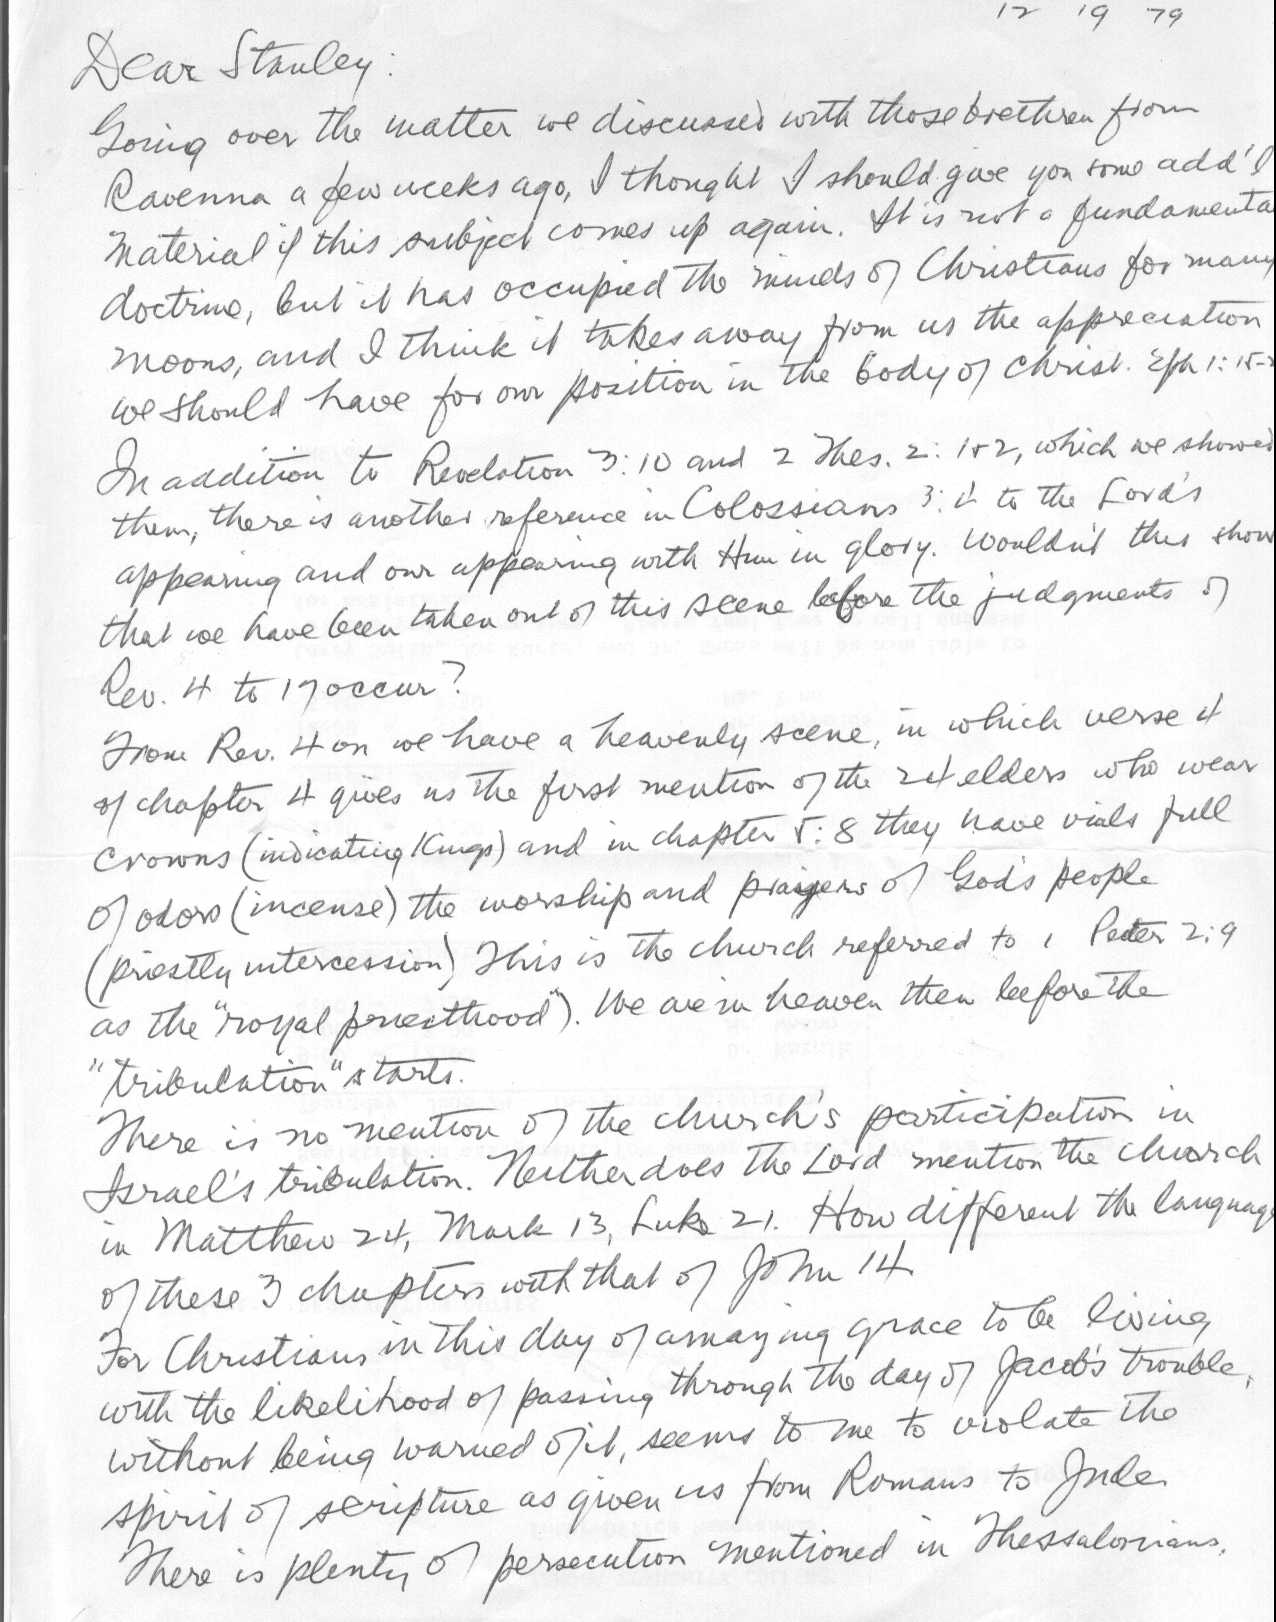 12 19 79
Dear Stanley:
Going over the matter we discussed with those brethren from
Ravenna a few weeks ago, I thought I should give you some add'l
material if this subject comes up again. It is not a fundamenta
doctrine, but it has occupied the minds of Christians for many
moons, and I think it takes away from us the appreciation
we should have for our position in the body of Christ. Eph 1:15-2
In addition to Revelation 3:10 and 2 Thes. 2: 1&2, which we showed
them, there is another reference in Colossians 3:4 to the Lord's
appearing and our appearing with Him in glory. Wouldn't this show
that we have been taken out of this scene before the judgments of
Rev. 4 to 19 occur?
From Rev. 4 on we have a heavenly scene, in which verse 4
of chapter 4 gives us the first mention of the 24 elders who wear
crowns (indicating Kings) and in chapter 5:8 they have vials full
of odors (incense) the worship and prayers of God's people
(priestly intercession) This is the church referred to 1 Peter 2:9
as the "royal priesthood"). We are in heaven then before the
"tribulation" starts.
There is no mention of the church's participation in
Israel's tribulation. Neither does the Lord mention the church
in Matthew 24, Mark 13, Luke 21. How different the languag
of these 3 chapters with that of John 14
For Christians in this day of amazing grace to be living
with the likelihood of passing through the day of Jacob's trouble,
without being warned of it, seems to me to violate the
spirit of scripture as given us from Romans to Jude.
There is plenty of persecution mentioned in Thessalonians.